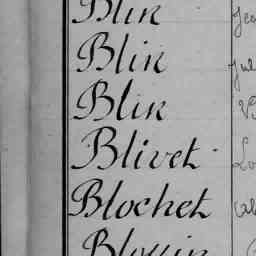 Blin
Blin
Blin
Blivet
Blochet
Blossin